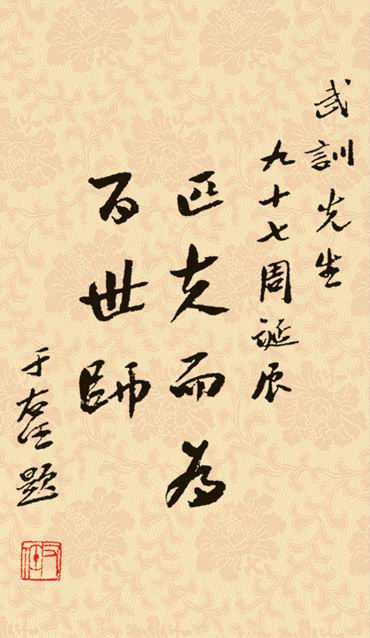 武訓先生
九十七周誕辰
匹夫而為
百世師
于右任題